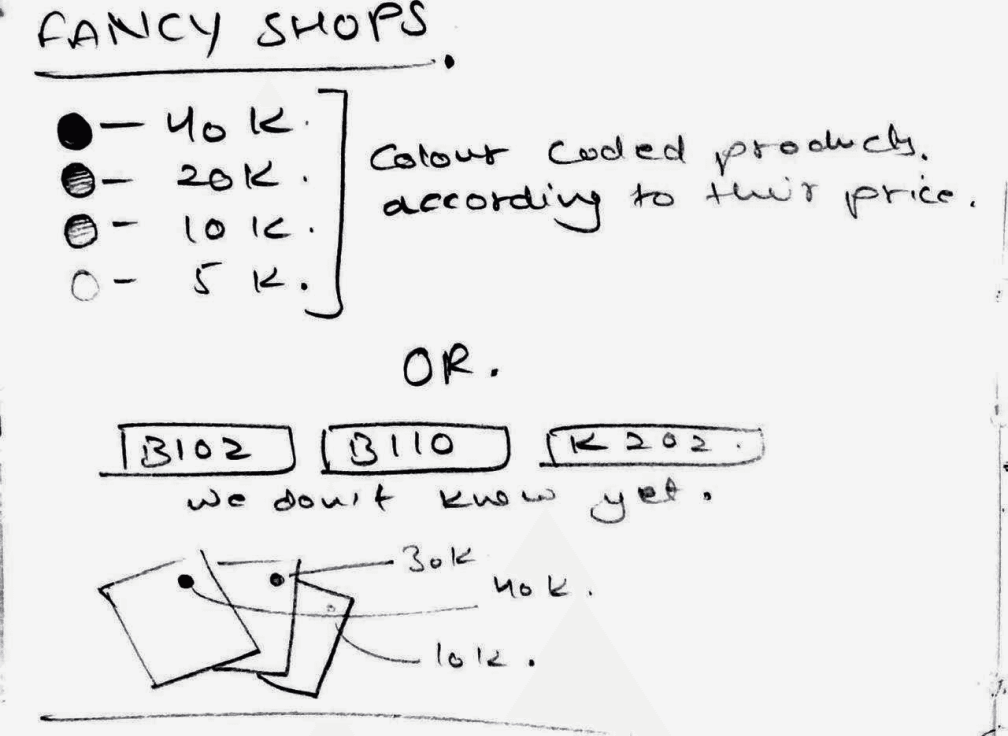 FANCY SHOPS.
- 40 K.
- 20K.
- 10 K.
- 5 K.
Colour Coded products.
according to their price.
OR.
B102 B110 K202.
we don't know yet.
30K
40 K.
10 K.